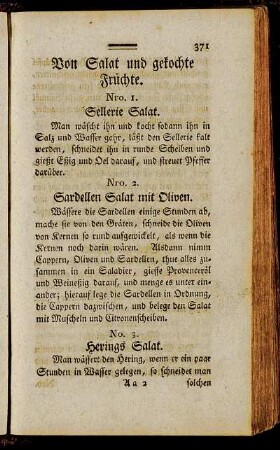 371
Von Salat und gekochte
Früchte.
Nro. 1.
Sellerie Salat.
Man wäscht ihn und kocht sodann ihn in
Salz und Wasser gehr, läßt den Sellerie kalt
werden, schneidet ihn in runde Scheiben und
gießt Eßig und Oel darauf, und streuet Pfeffer
darüber.
Nro. 2.
Sardellen Salat mit Oliven.
Wässere die Sardellen einige Stunden ab,
mache sie von den Gräten, schneide die Oliven
von Kernen so rund aufgewickelt, als wenn die
Kernen noch darin wären. Alsdann nimm
Cappern, Oliven und Sardellen, thue alles zu-
sammen in ein Saladier, giesse Provenceröl
und Weineßig darauf, und menge es unter ein-
ander; hierauf lege die Sardellen in Ordnung,
die Cappern dazwischen, und belege den Salat
mit Muscheln und Citronenscheiben.
No. 3.
Herings Salat.
Man wässert den Hering, wenn er ein paar
Stunden in Wasser gelegen, so schneidet man
Aa 2 solchen